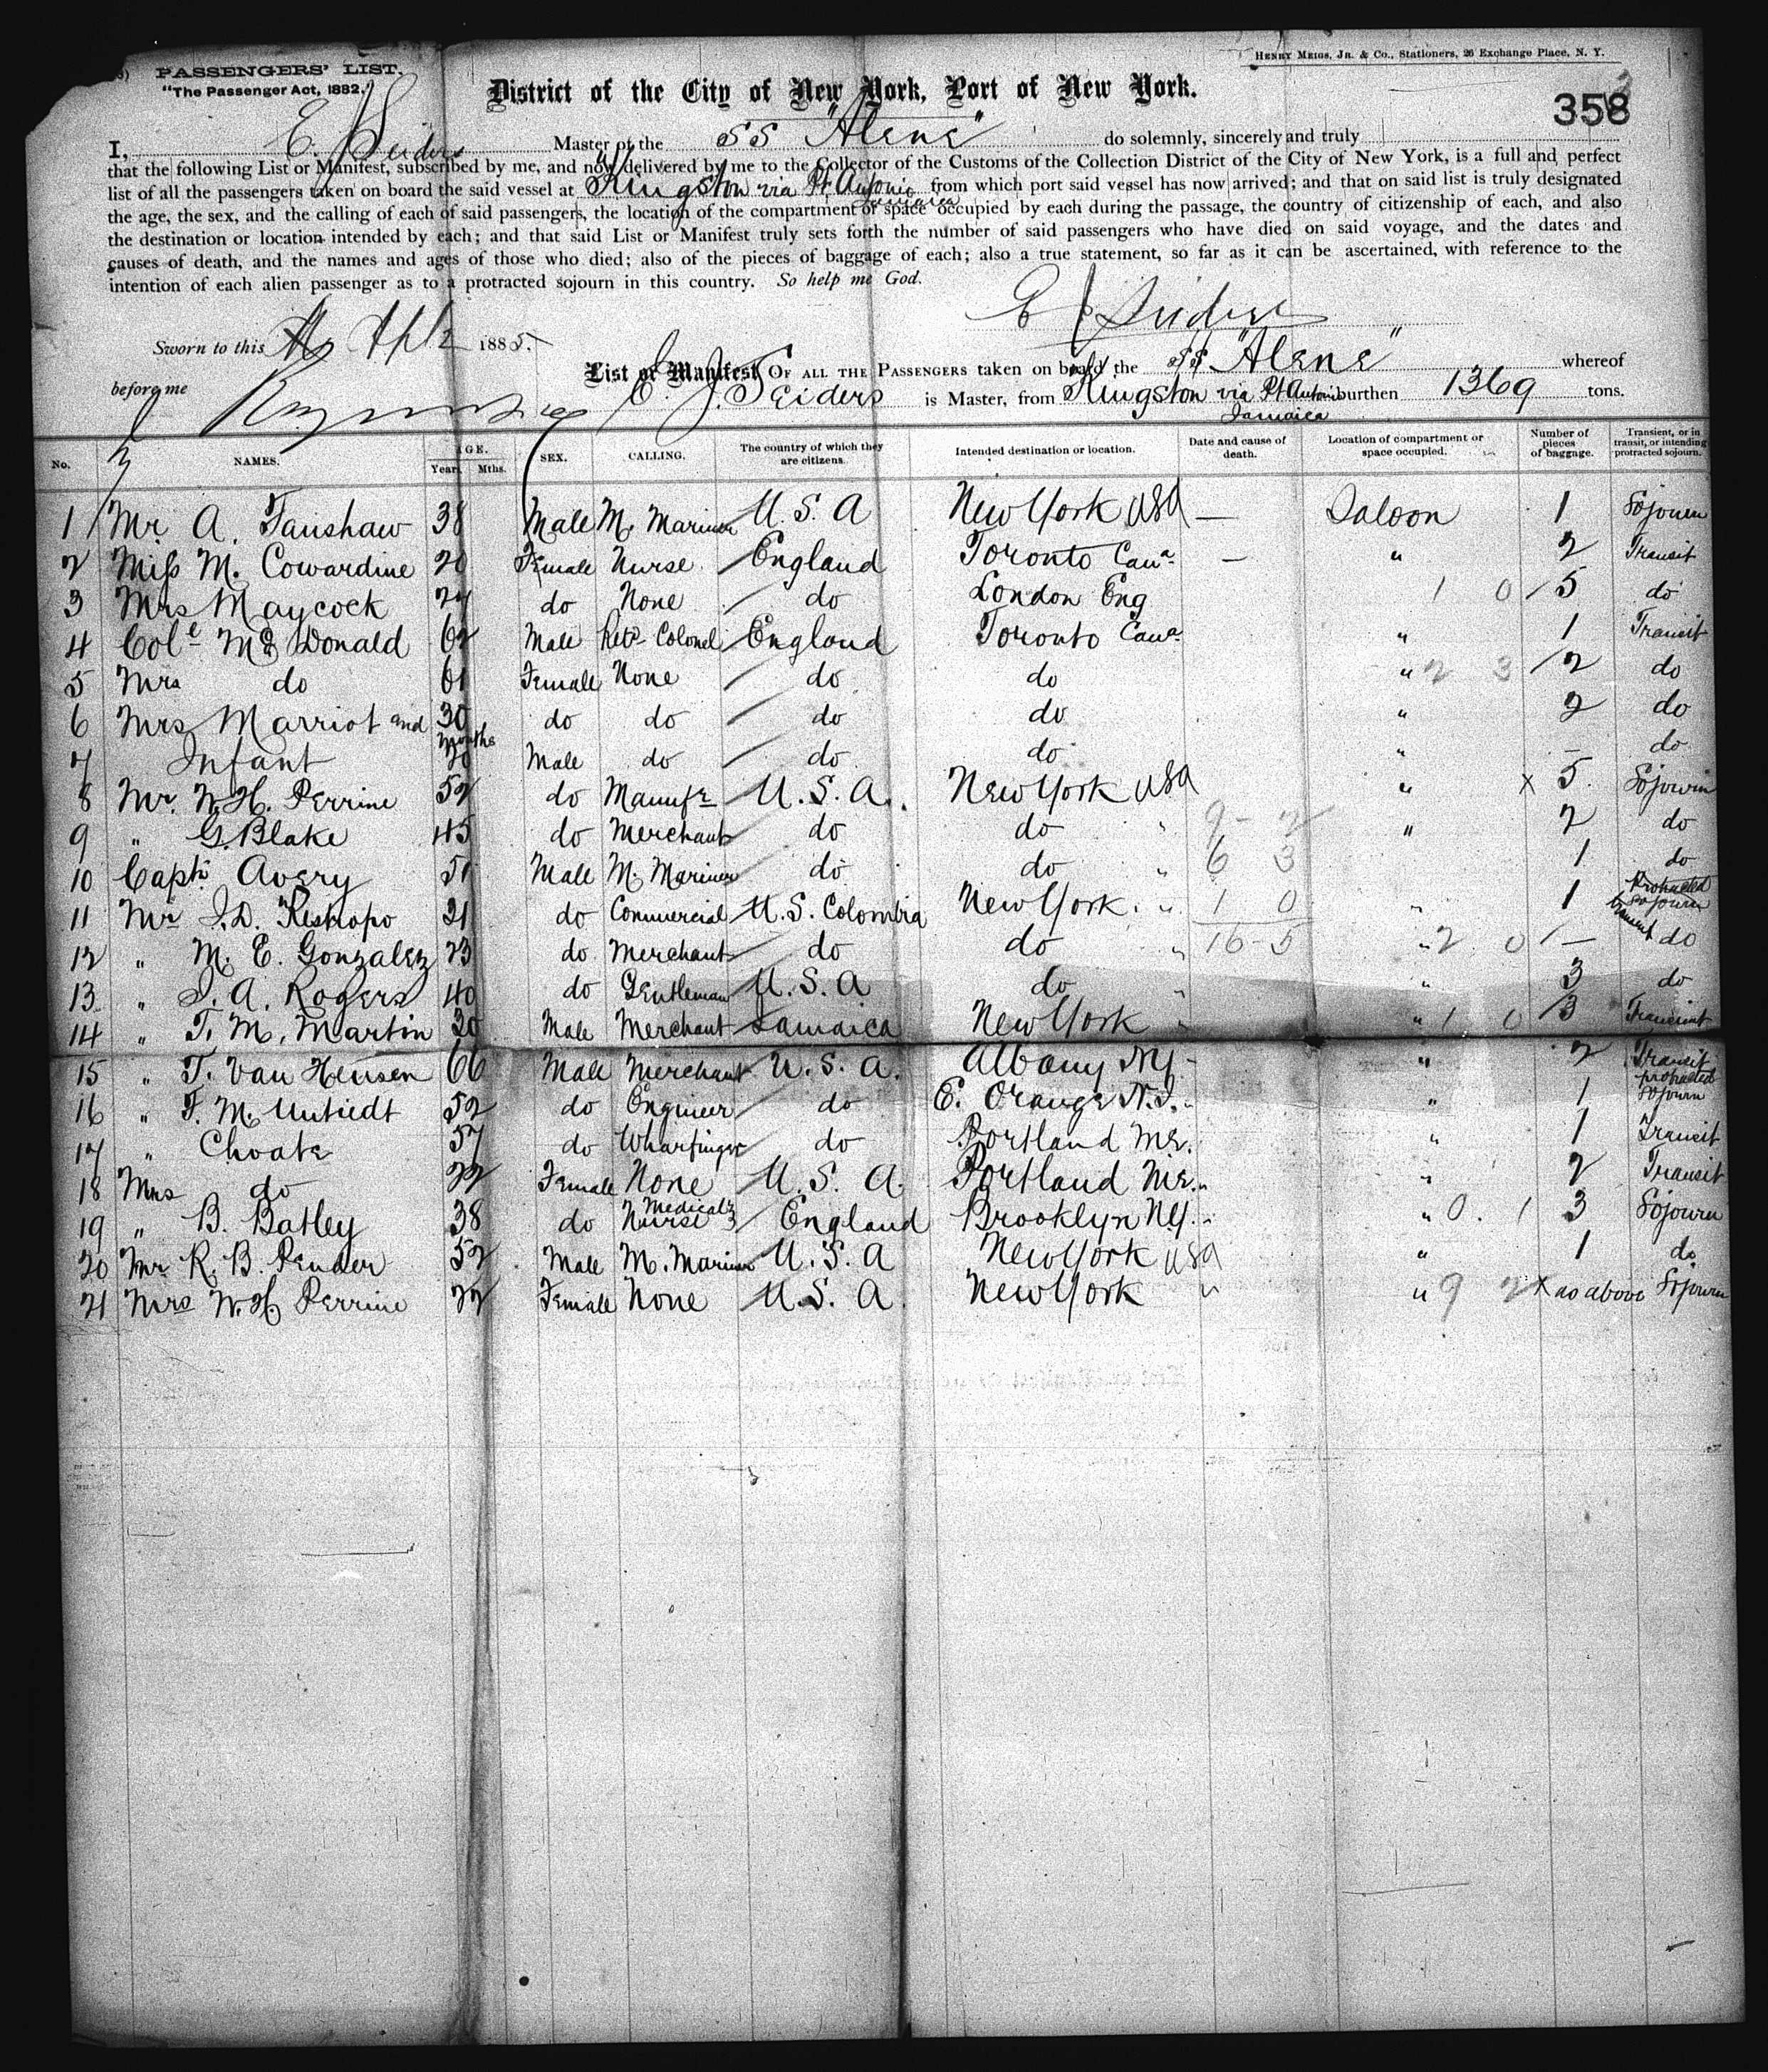 PASSENGERS' LIST.
"The Passenger Act, 1882."
HENRY MEIGS, JR. & CO., Stationers, 26 Exchange Place, N. Y.
District of the City of New York, Port of New York.
358
I, E. J. Seiders Master of the SS "Alene" do solemnly, sincerely and truly
that the following List or Manifest, subscribed by me, and now delivered by me to the Collector of the Customs of the Collection District of the City of New York, is a full and perfect
list of all the passengers taken on board the said vessel at Kingston via Pt Antonio Jamaica from which port said vessel has now arrived; and that on said list is truly designated
the age, the sex, and the calling of each of said passengers, the location of the compartment or space occupied by each during the passage, the country of citizenship of each, and also
the destination or location intended by each; and that said List or Manifest truly sets forth the number of said passengers who have died on said voyage, and the dates and
causes of death, and the names and ages of those who died; also of the pieces of baggage of each; also a true statement, so far as it can be ascertained, with reference to the
intention of each alien passenger as to a protracted sojourn in this country. So help me God.
E J Seiders
Sworn to this Apl 1885.
before me
List or Manifest OF ALL THE PASSENGERS taken on board the SS "Alene" whereof
E. J. Seiders is Master, from Kingston via Pt Antonio Jamaica burthen 1369 tons.
No. NAMES. AGE. Years. Mths. SEX. CALLING. The country of which they are citizens. Intended destination or location. Date and cause of death. Location of compartment or space occupied. Number of pieces of baggage. Transient, or in transit, or intending protracted sojourn.
1 Mr. A. Fanshaw 38 Male M. Mariner U. S. A New York USA — Saloon 1 Sojourn
2 Miss M. Cowardine 20 Female Nurse England Toronto Cana — " 2 Transit
3 Mrs Maycock 27 do None do London Eng 1 0 5 do
4 Col. Mc Donald 62 Male Retd Colonel England Toronto Cana " 1 Transit
5 Mrs do 61 Female None do do " 2 3 2 do
6 Mrs Marriot and 30 do do do do " 2 do
7 Infant months Male do do do " — do
8 Mr. W. H. Perrine 52 do Manufr U. S. A. New York USA " x 5. Sojourn
9 " G. Blake 45 do Merchant do do " 9 - 2 " 2 do
10 Captn Avery 51 Male M. Mariner do do " 6 3 1 do
11 Mr J. D. Restropo 21 do Commercial U. S. Colombia New York. " 1 0 " 1 Protracted sojourn
12 " M. E. Gonzalez 23 do Merchant do do " 16 - 5 " 2 0 — transient do
13 " J. A. Rogers 40 do Gentleman U. S. A do " " 3 do
14 " T. M. Martin 30 Male Merchant Jamaica New York " " 1 0 3 Transient
15 " T. Van Heusen 66 Male Merchant U. S. A. Albany NY. " 2 Transit
16 " F. M. Untiedt 52 do Engineer do E. Orange N. J. " 1 protracted sojourn
17 " Choate 57 do Wharfinger do Portland Me. " 1 Transit
18 Mrs do 22 Female None U. S. A. Portland Me. " 2 Transit
19 " B. Batley 38 do Medical Nurse England Brooklyn NY. " 0. 1 3 Sojourn
20 Mr R. B. Pender 52 Male M. Mariner U. S. A New York USA " 1 do
21 Mrs W. H. Perrine 22 Female None U. S. A. New York " " 9 2 x as above Sojourn